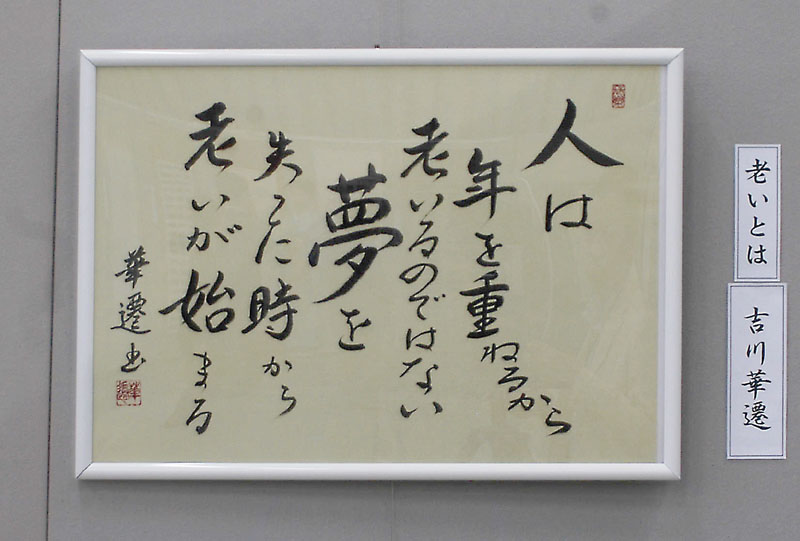 人は
年を重ねるから
老いるのではない
夢を
失った時から
老いが始まる
華遷書
老いとは
吉川華遷